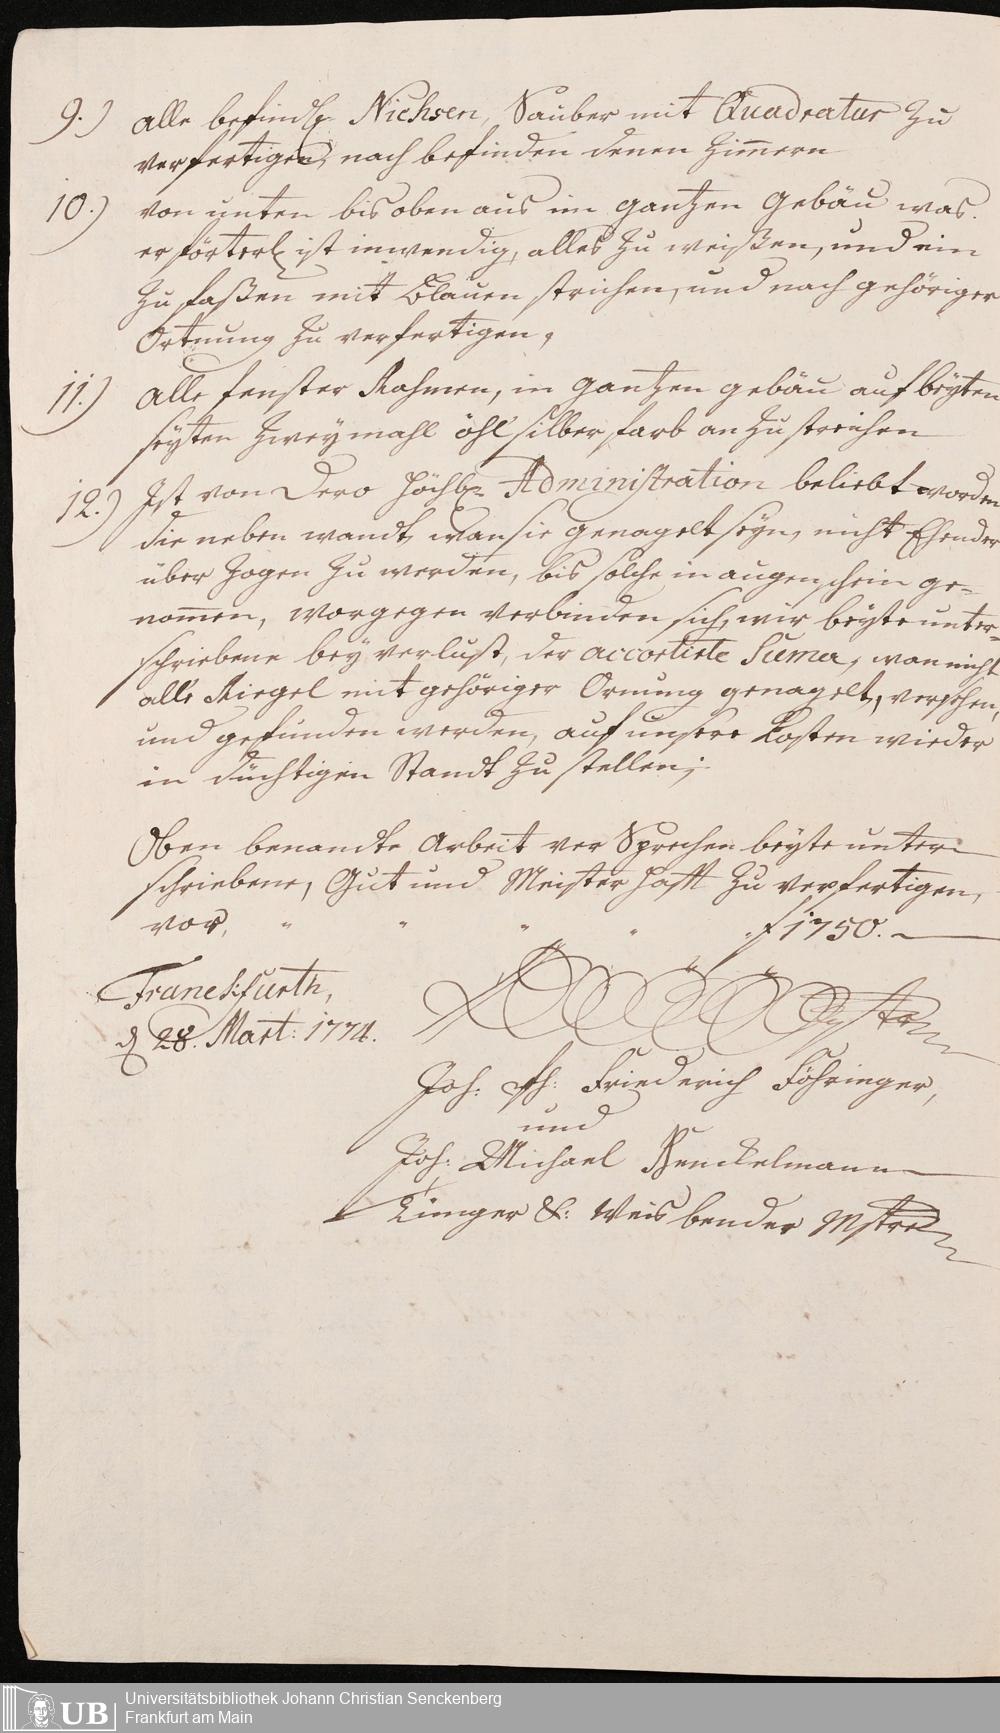 9.) alle befindl. Nichsen, Sauber mit Quadratur zu
verfertigen, nach befinden denen Zimmern
10.) von unten bis oben aus im gantzen gebäu was
erförterl ist inwendig, alles zu weißen, und ein
zu faßen mit Blauen strichen, und nach gehöriger
Ortnung zu verfertigen,
11.) alle fenster Rahmen, in gantzen gebäu auf beyten
seyten zweymahl öhl silber farb an zu streichen
12.) Ist von Dero Höchl. Administration beliebt worden
die neben wandt, wan sie genagelt seyn, nicht Ehender
über zogen zu werden, bis solche in augenschein ge-
nomen, worgegen verbinden sich, wir beyte unter-
schriebene bey verlust, der accortirte Suma, wan nicht
alle Riegel mit gehöriger Ornung genagelt, versehen,
und gefunden werden, auf unsere Kosten wieder
in düchtigen Standt zu stellen;
Oben benandte Arbeit ver Sprechen beyte unter-
schriebene, Gut und Meisterhafft zu verfertigen,
vor, " " " " f 1750.
Franckfurth,
d 28. Mart: 1774.
Joh: Ph: Friederich Föhringer,
und
Joh: Michael Henckelmann
Tünger &: Weisbender Mstre
Universitätsbibliothek Johann Christian Senckenberg
Frankfurt am Main
UB